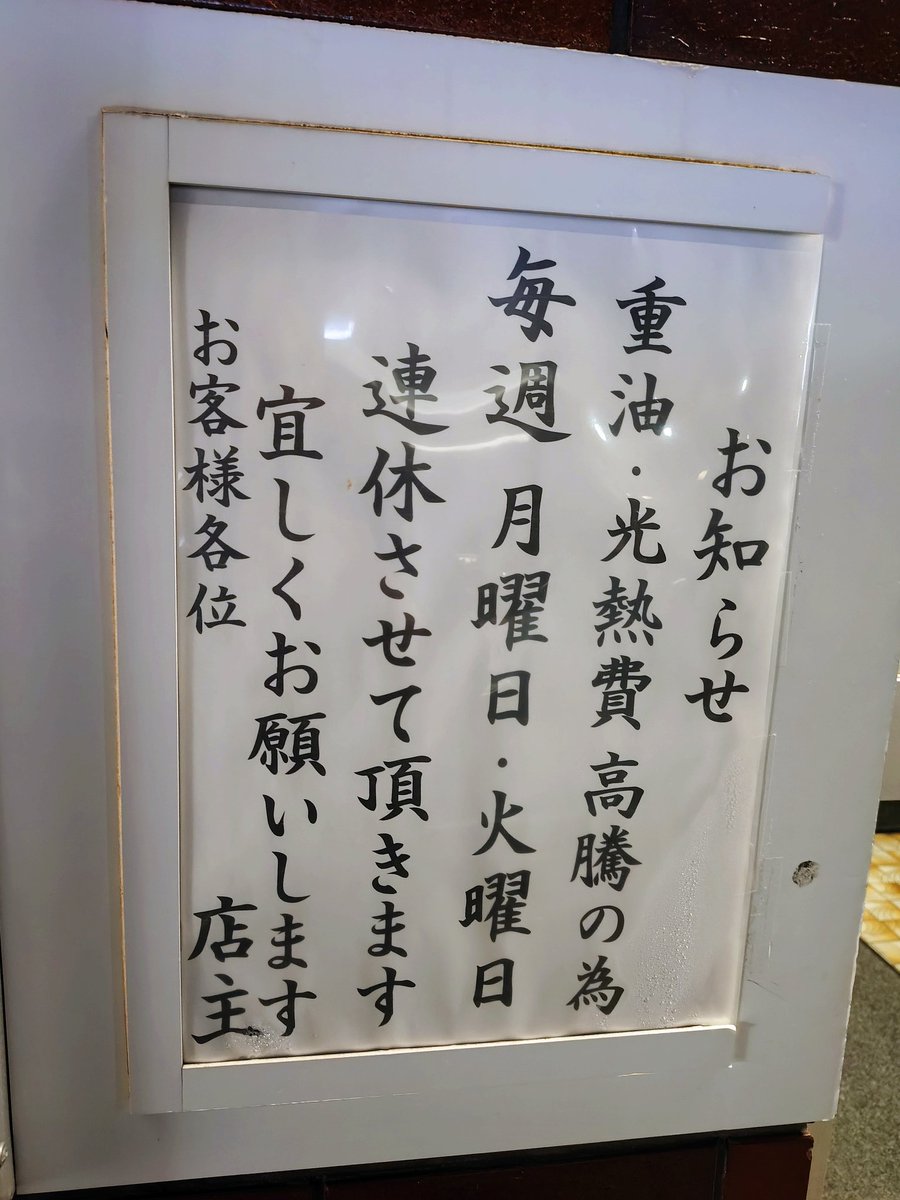 お知らせ
重油・光熱費高騰の為
毎週 月曜日・火曜日
連休させて頂きます
宜しくお願いします
お客様各位 店主